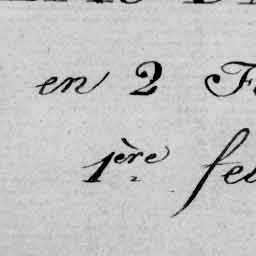 en 2 F
1ère feu